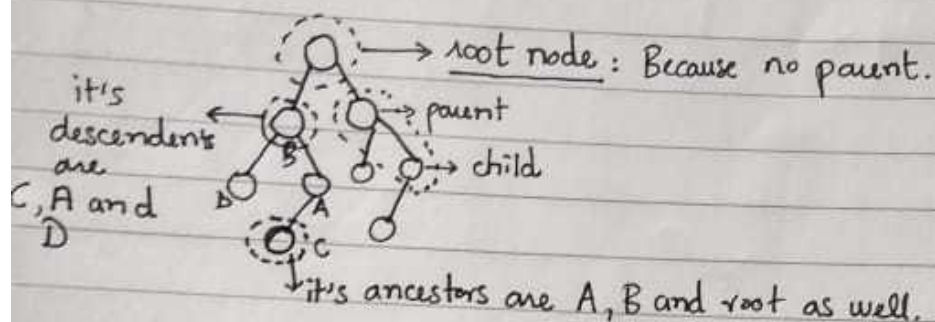 root node : Because no parent.
it's
descendents
are
C, A and
D
parent
child
B
D
A
C
it's ancestors are A, B and root as well.